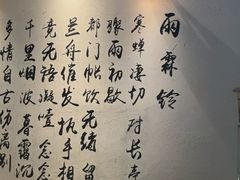 雨霖铃
寒蝉凄切对长亭
骤雨初歇
都门帐饮无绪留
兰舟催发执手相
竟无语凝噎念
千里烟波暮霭沉
多情自古伤离别